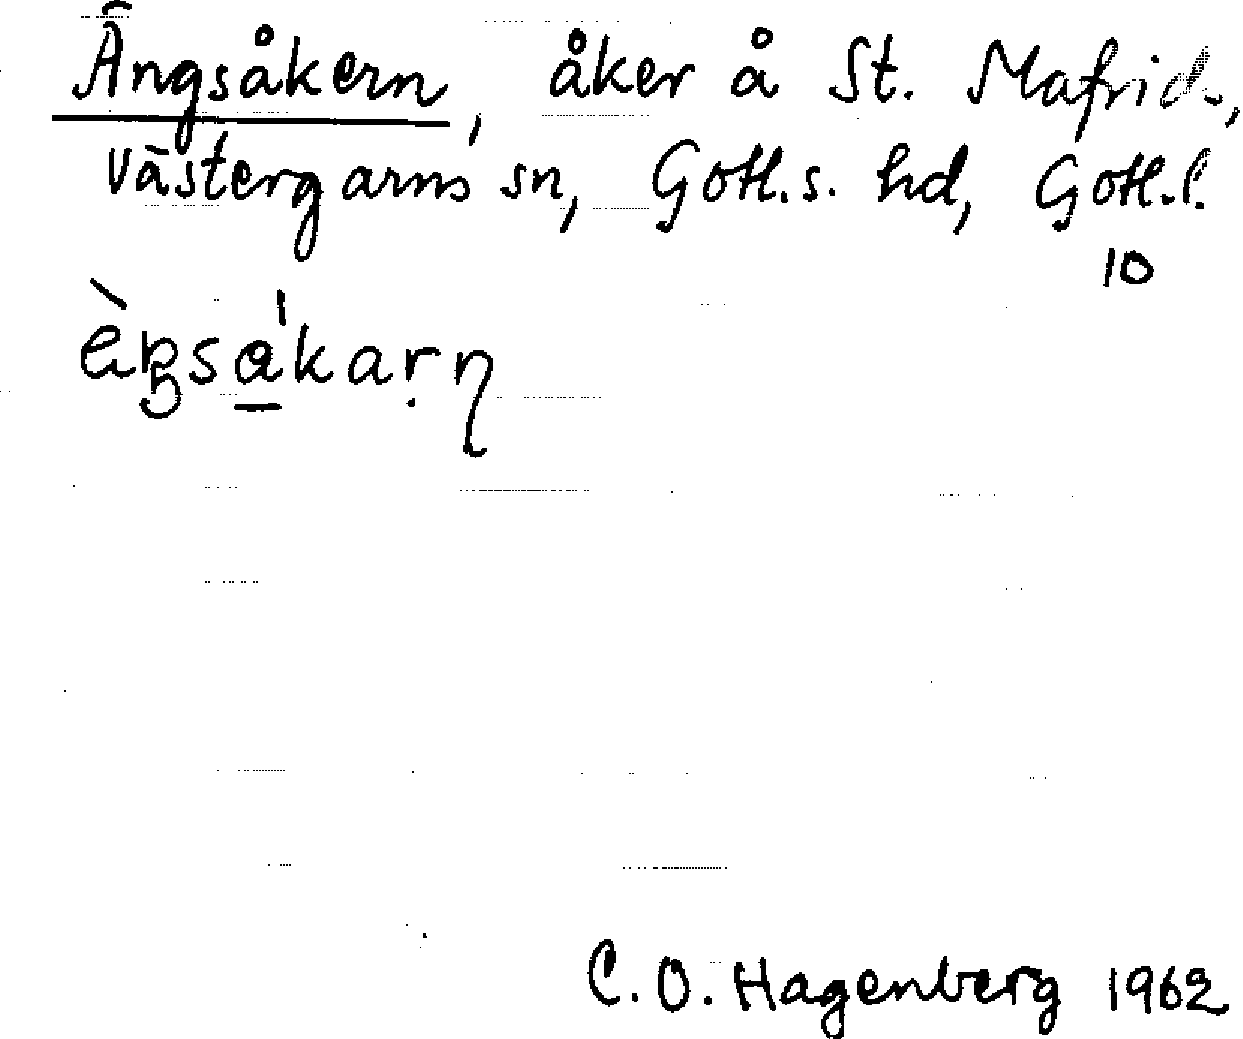 Ängsåkern, åker å St. Mafrids,
Västergarns sn, Gotl.s. hd, Gotl.l.
10
C. O. Hagenberg 1962